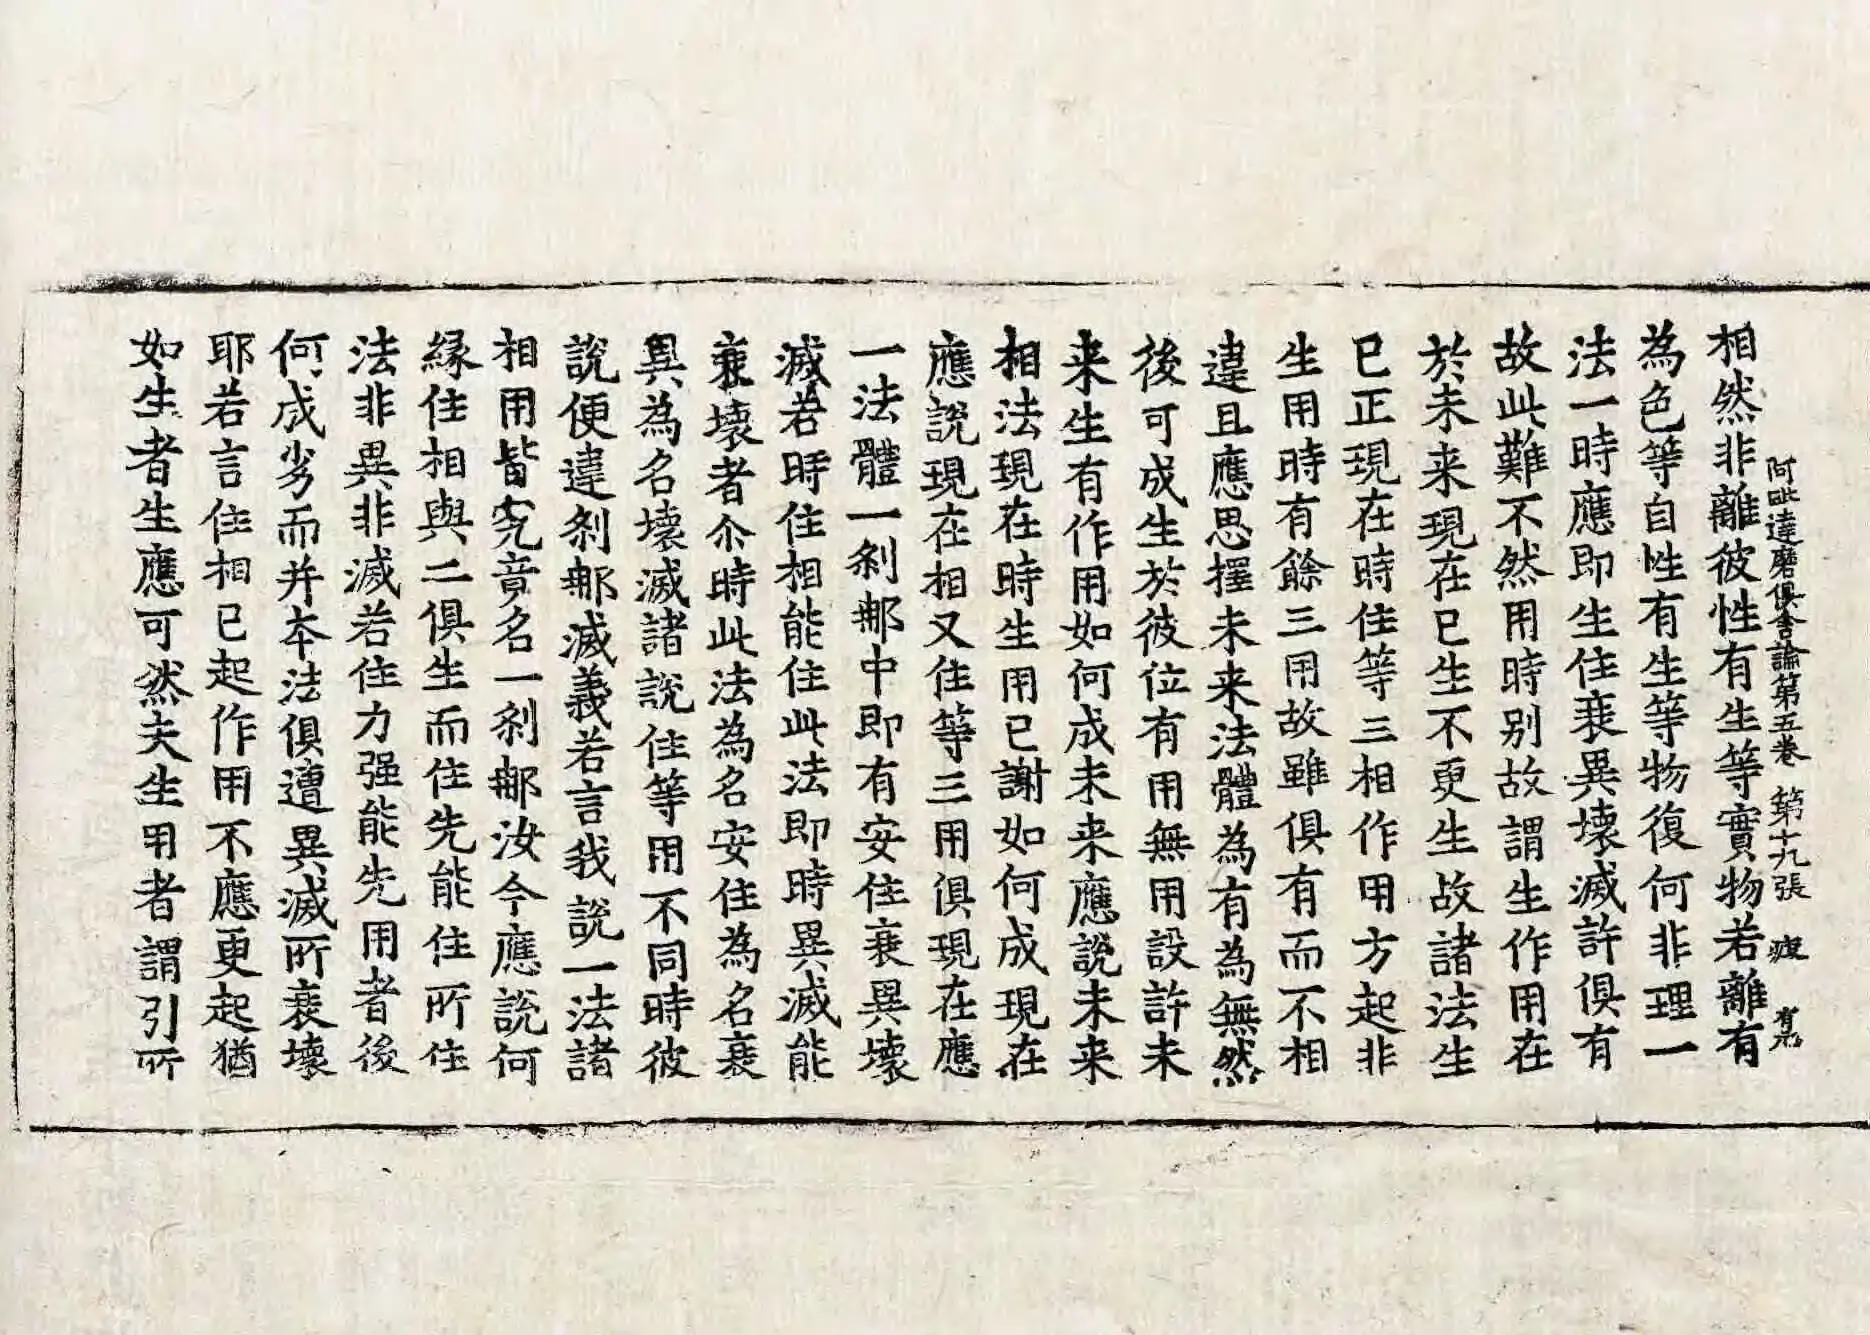 阿毗達磨俱舍論第五卷 第十九張 疲
相然非離彼性有生等實物若離有
為色等自性有生等物復何非理一
法一時應即生住衰異壞滅許俱有
故此難不然用時別故謂生作用在
於未来現在已生不更生故諸法生
已正現在時住等三相作用方起非
生用時有餘三用故雖俱有而不相
違且應思擇未来法體為有為無然
後可成生於彼位有用無用設許未
来生有作用如何成未来應說未来
相法現在時生用已謝如何成現在
應說現在相又住等三用俱現在應
一法體一剎那中即有安住衰異壞
滅若時住相能住此法即時異滅能
衰壞者尒時此法為名安住為名衰
異為名壞滅諸說住等用不同時彼
說便違剎那滅義若言我說一法諸
相用皆究竟名一剎那汝今應說何
緣住相與二俱生而住先能住所住
法非異非滅若住力强能先用者後
何成劣而并本法俱遭異滅所衰壞
耶若言住相已起作用不應更起猶
如生者生應可然夫生用者謂引所